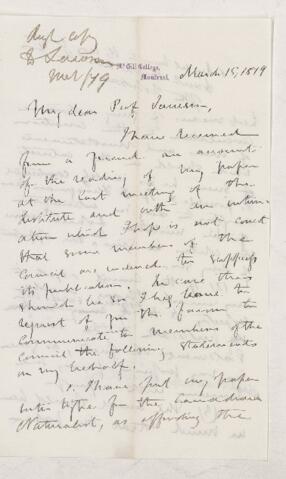 McGill College,
Montreal,
March 15, 1879
My dear Prof
I have received
from a friend an account
of the reading of my paper
at the last meeting of the
Institute and with an intim-
ation which I hope is not correct
that some members of the
Council are inclined to suppress
its publication. In case this
should be so I beg leave to
request of you the favor to
communicate to members of the
Council the following statements
on my behalf.
1. I have put my paper
into type for the Canadian
Naturalist, as affording the